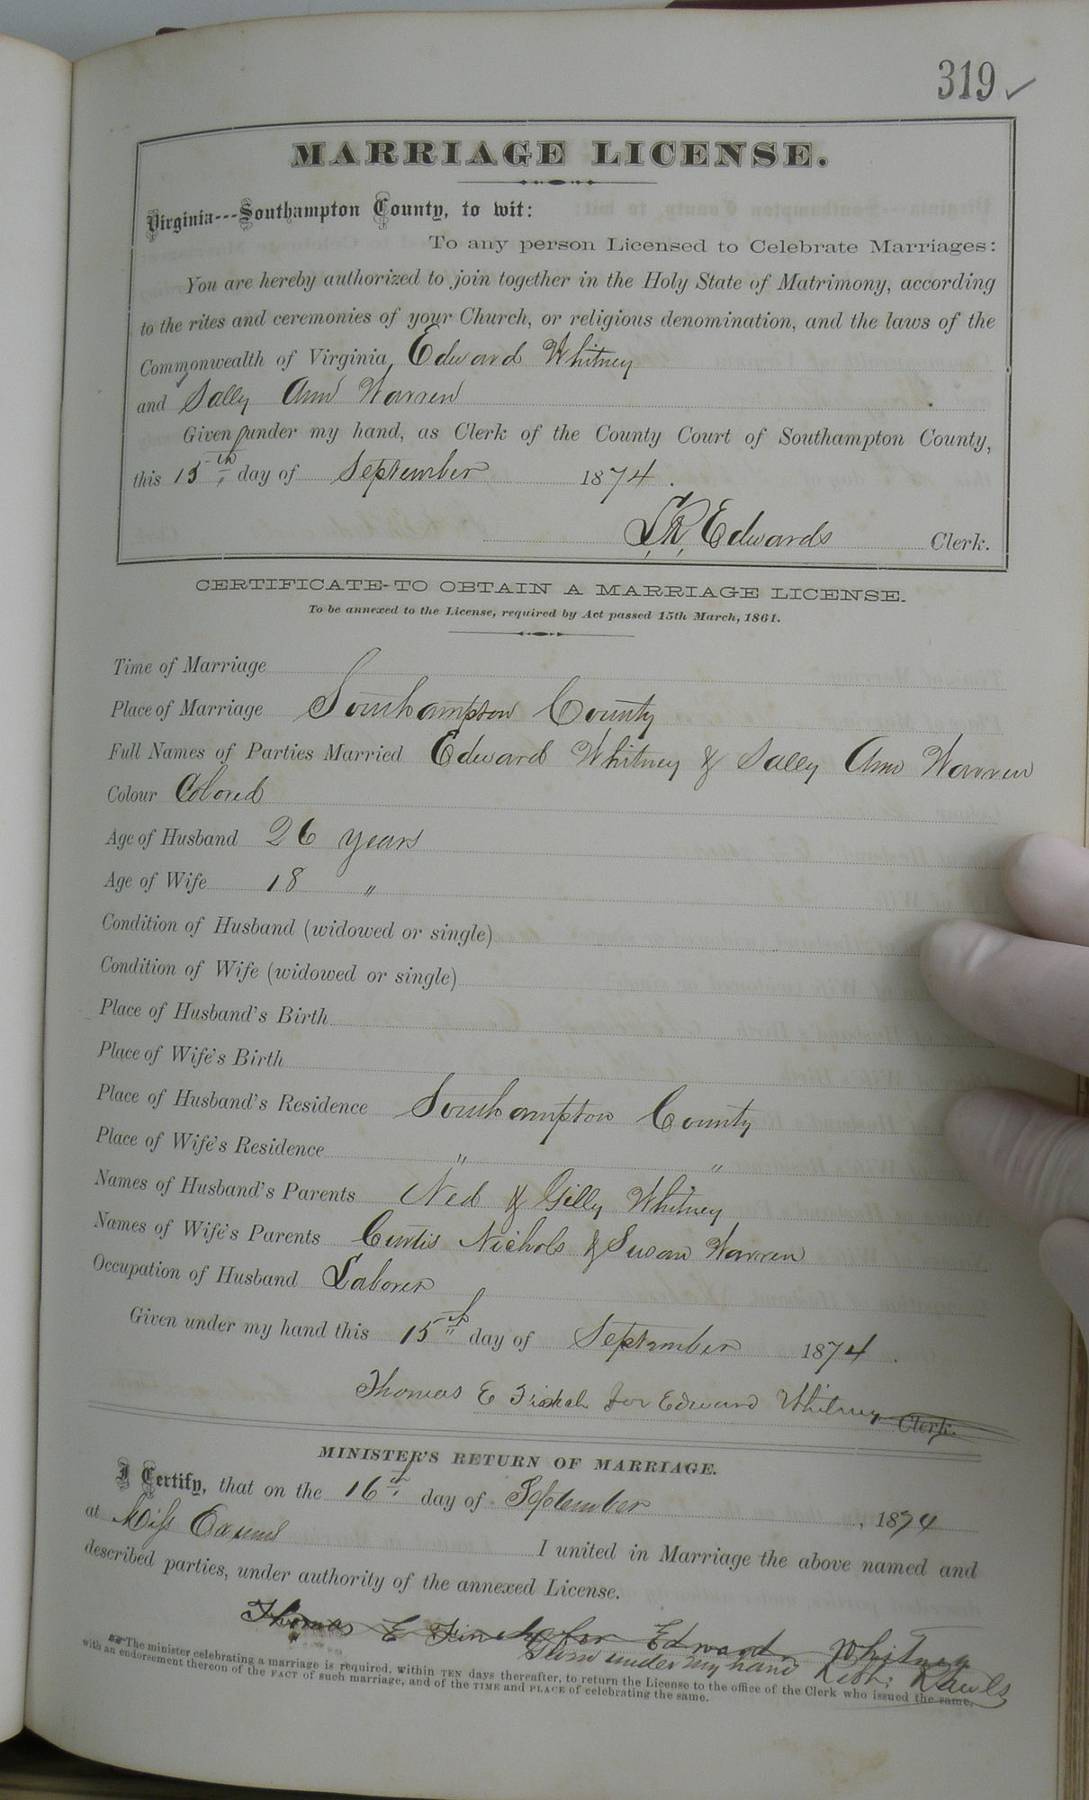 319 ✓
MARRIAGE LICENSE.
Virginia---Southampton County, to wit:
To any person Licensed to Celebrate Marriages:
You are hereby authorized to join together in the Holy State of Matrimony, according
to the rites and ceremonies of your Church, or religious denomination, and the laws of the
Commonwealth of Virginia, Edward Whitney
and Sally Ann Warren
Given under my hand, as Clerk of the County Court of Southampton County,
this 15th day of September 1874.
L. R. Edwards Clerk.
CERTIFICATE TO OBTAIN A MARRIAGE LICENSE.
To be annexed to the License, required by Act passed 15th March, 1861.
Time of Marriage
Place of Marriage Southampton County
Full Names of Parties Married Edward Whitney & Sally Ann Warren
Colour Colored
Age of Husband 26 years
Age of Wife 18 "
Condition of Husband (widowed or single)
Condition of Wife (widowed or single)
Place of Husband's Birth
Place of Wife's Birth
Place of Husband's Residence Southampton County
Place of Wife's Residence " "
Names of Husband's Parents Ned & Gilly Whitney
Names of Wife's Parents Curtis Nichols & Susan Warren
Occupation of Husband Laborer
Given under my hand this 15th day of September 1874.
Thomas E for Edward Whitney Clerk.
MINISTER'S RETURN OF MARRIAGE.
I Certify, that on the 16th day of September, 1874
at Miss I united in Marriage the above named and
described parties, under authority of the annexed License.
Thomas E for Edward Whitney
Given under my hand Rawls
The minister celebrating a marriage is required, within TEN days thereafter, to return the License to the office of the Clerk who issued the same,
with an endorsement thereon of the FACT of such marriage, and of the TIME and PLACE of celebrating the same.